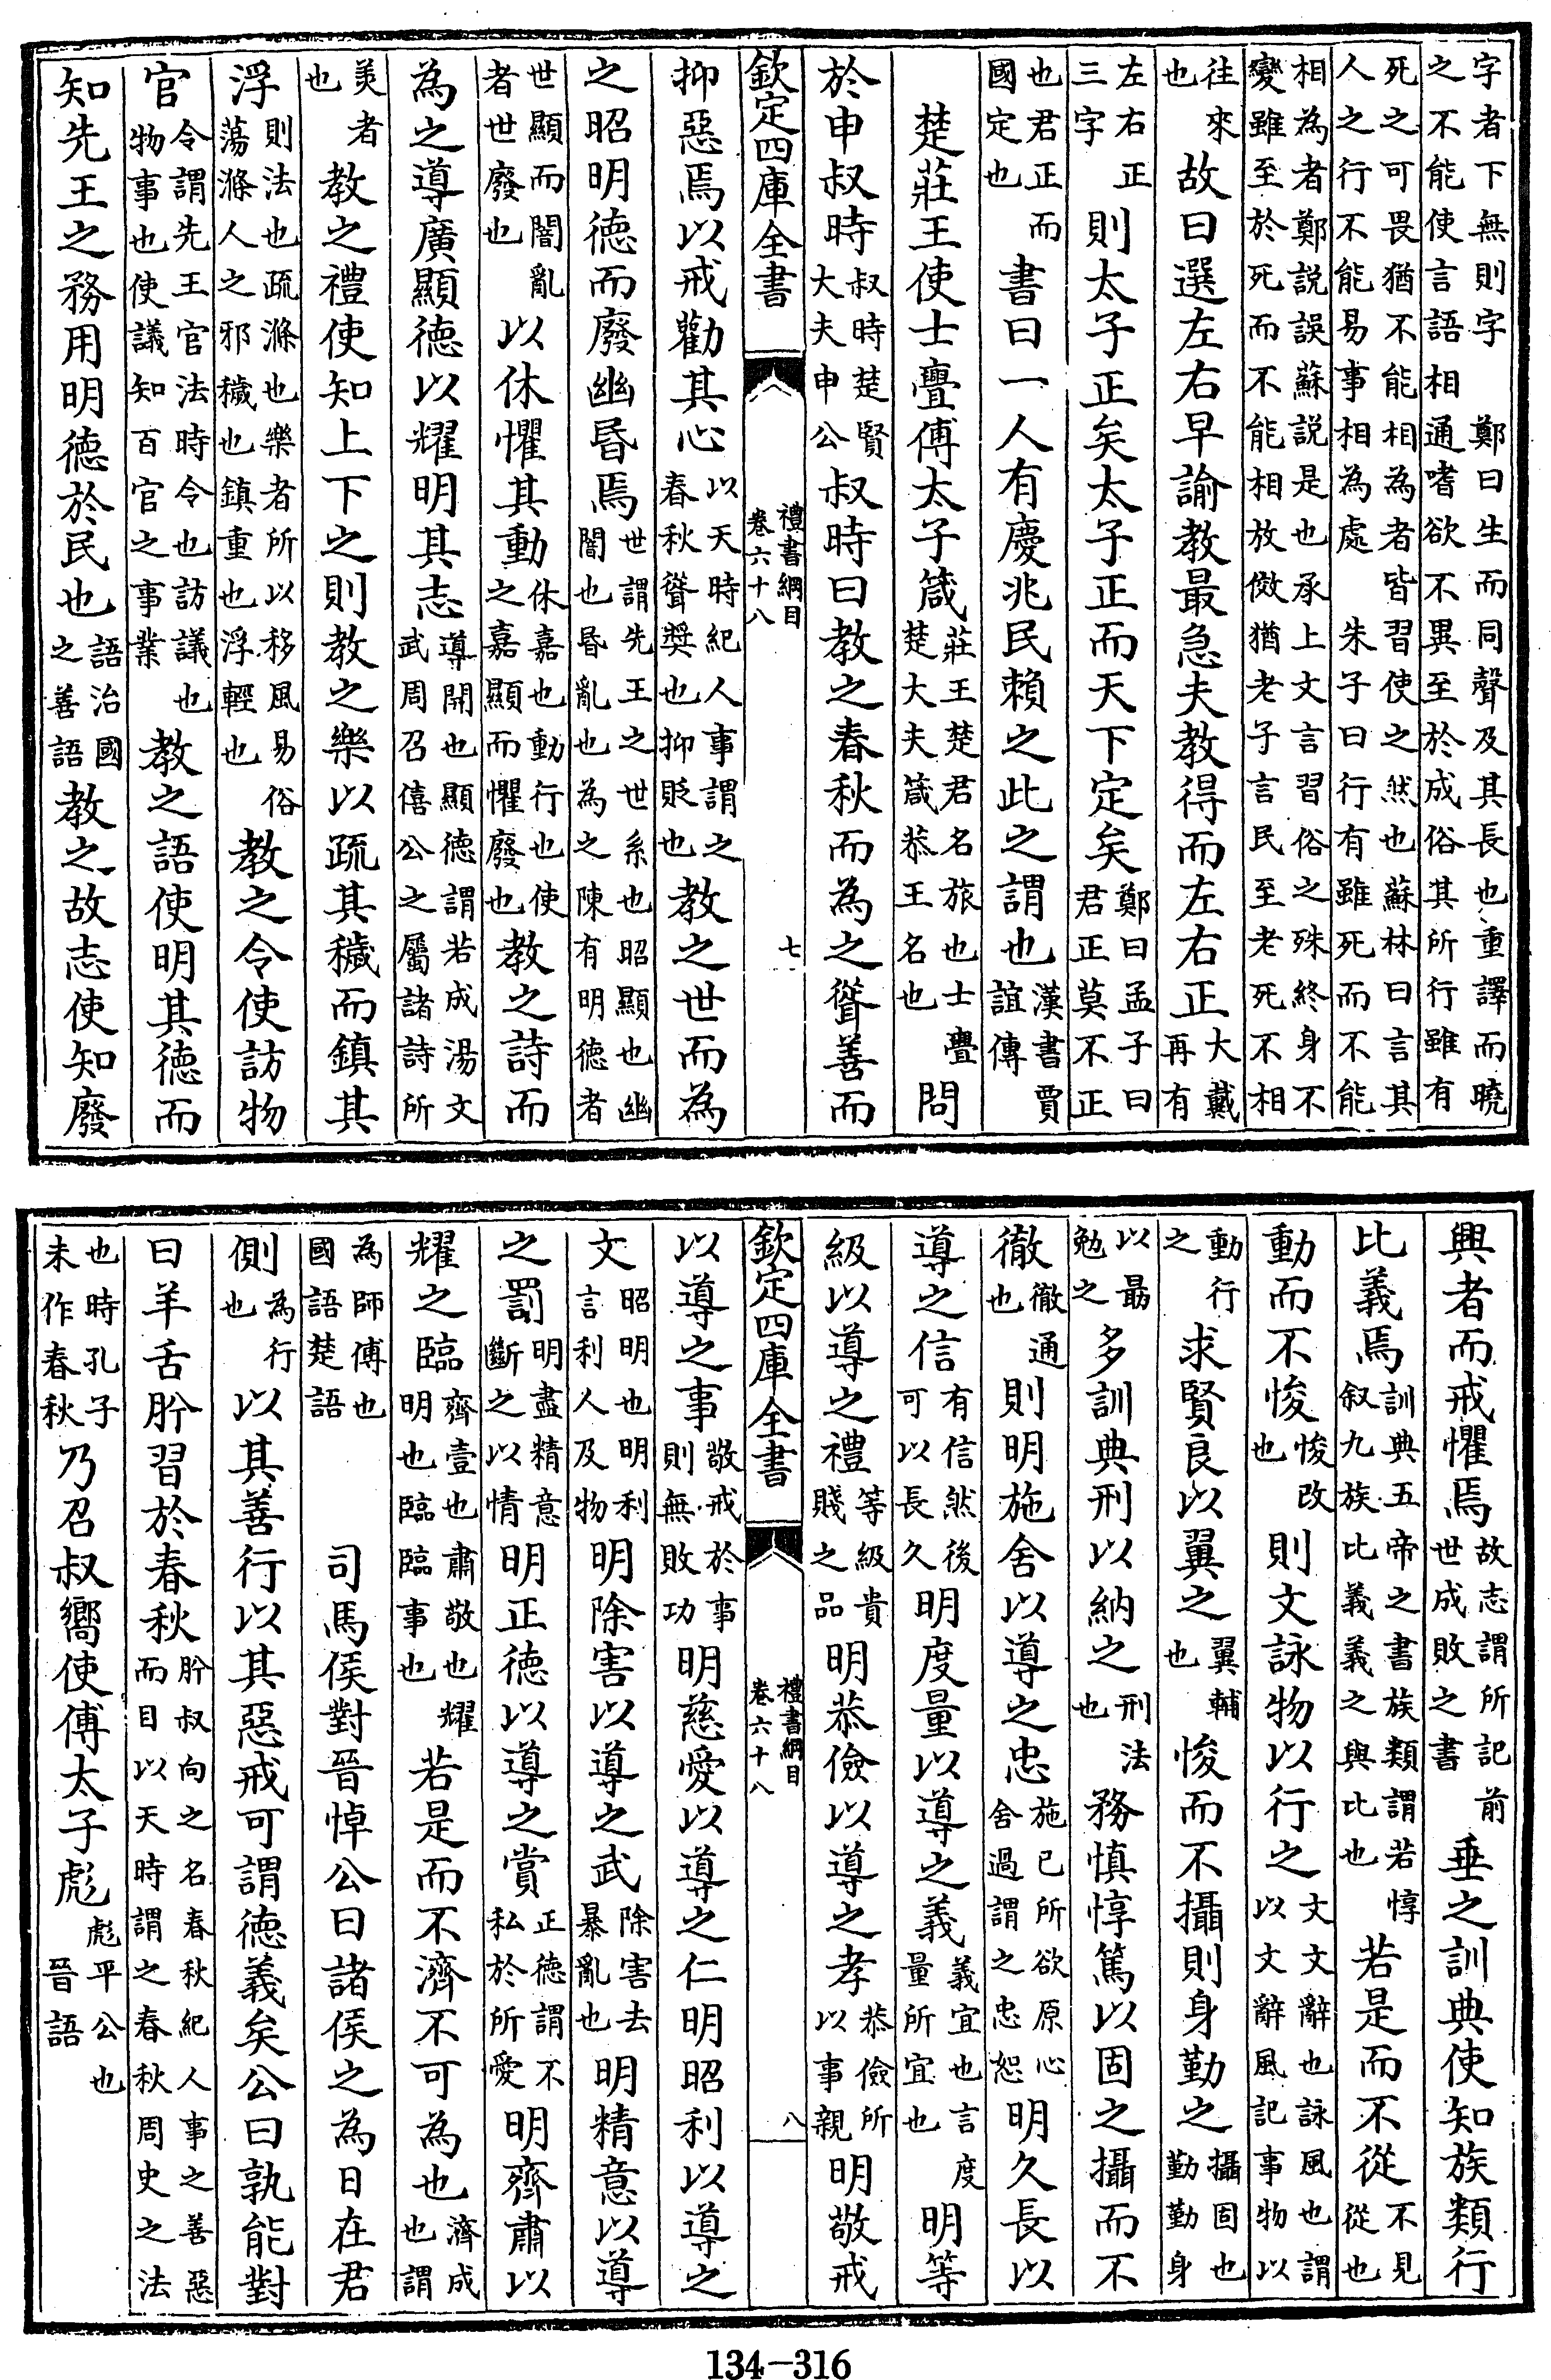 字者下無則字　鄭曰生而同聲及其長也重譯而曉
之不能使言語相通嗜欲不異至於成俗其所行雖有
死之可畏猶不能相為者皆習使之然也蘇林曰言其
人之行不能易事相為處　朱子曰行有雖死而不能
相為者鄭説誤蘇説是也承上文言習俗之殊終身不
變雖至於死而不能相放傚猶老子言民至老死不相
往來也故曰選左右早諭教最急夫教得而左右正大戴再有
左右正三字則太子正矣太子正而天下定矣鄭曰孟子曰君正莫不正
也君正而國定也書曰一人有慶兆民賴之此之謂也漢書賈誼傳
楚莊王使士亹傅太子箴莊王楚君名旅也士亹楚大夫箴恭王名也問
於申叔時叔時楚賢大夫申公叔時曰教之春秋而為之聳善而
欽定四庫全書　禮書綱目卷六十八　七
抑惡焉以戒勸其心以天時紀人事謂之春秋聳獎也抑貶也教之世而為
之昭明德而廢幽昬焉世謂先王之世系也昭顯也幽闇也昬亂也為之陳有明德者
世顯而闇亂者世廢也以休懼其動休嘉也動行也使之嘉顯而懼廢也教之詩而
為之導廣顯德以耀明其志導開也顯德謂若成湯文武周召僖公之屬諸詩所
美者也教之禮使知上下之則教之樂以疏其穢而鎮其
浮則法也疏滌也樂者所以移風易俗蕩滌人之邪穢也鎮重也浮輕也教之令使訪物
官令謂先王官法時令也訪議也物事也使議知百官之事業教之語使明其德而
知先王之務用明德於民也語治國之善語教之故志使知廢
興者而戒懼焉故志謂所記前世成敗之書垂之訓典使知族類行
比義焉訓典五帝之書族類謂若惇叙九族比義義之與比也若是而不從不見從也
動而不悛悛改也則文詠物以行之文文辭也詠風也謂以文辭風記事物以
動行之求賢良以翼之翼輔也悛而不攝則身勤之攝固也勤勤身
以朂勉之多訓典刑以納之刑法也務慎惇篤以固之攝而不
徹徹通也則明施舍以導之忠施己所欲原心舍過謂之忠恕明久長以
導之信有信然後可以長久明度量以導之義義宜也言度量所宜也明等
級以導之禮等級貴賤之品明恭儉以導之孝恭儉所以事親明敬戒
欽定四庫全書　禮書綱目卷六十八　八
以導之事敬戒於事則無敗功明慈愛以導之仁明昭利以導之
文昭明也明利言利人及物明除害以導之武除害去暴亂也明精意以導
之罰明盡精意斷之以情明正德以導之賞正德謂不私於所愛明齊肅以
耀之臨齊壹也肅敬也耀明也臨臨事也若是而不濟不可為也濟成也謂
為師傅也國語楚語　司馬侯對晉悼公曰諸侯之為日在君
側為行也以其善行以其惡戒可謂德義矣公曰孰能對
曰羊舌肸習於春秋肸叔向之名春秋紀人事之善惡而目以天時謂之春秋周史之法
也時孔子未作春秋乃召叔嚮使傅太子彪彪平公也晉語
134—316